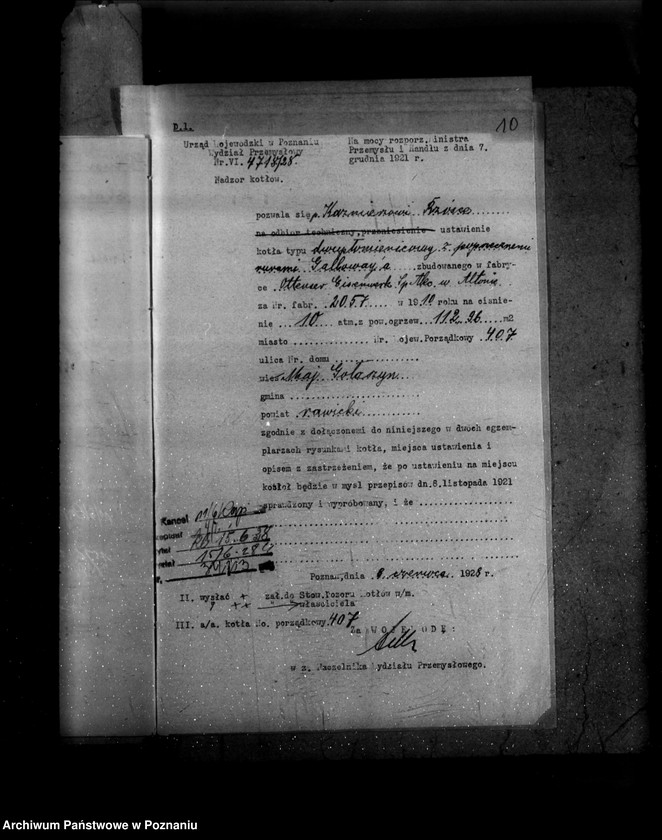 10
Urząd Wojewódzki w Poznaniu
Wydział Przemysłowy
Nr.VI. 4718/28.
Nadzor kotłów.
Na mocy rozporz. Ministra
Przemysłu i Handlu z dnia 7.
grudnia 1921 r.
pozwala się p.
na odbiór techniczny, przeniesienie ustawienie
kotła typu dwupłomienicowy z poprzecznemi
rurami Galloway'a ....zbudowanego w fabry-
ce Ottenser Eisenwerk w Altonie
za Nr. fabr. .2057.. w 1910 roku na ciśnie-
nie ...10 ..atm.z pow.ogrzew..112.26...m2
miasto ............... Nr. Wojew.Porządkowy .407
ulica Nr. domu ...............
wieś Maj. Gołaszyn
gmina ........................
powiat rawicki............
zgodnie z dołączonemi do niniejszego w dwoch egzem-
plarzach rysunkami kotła, miejsca ustawienia i
opisem z zastrzeżeniem, że po ustawieniu na miejscu
kotioł będzie w mysl przepisów dn.6.listopada 1921
sprawdzony i wypróbowany, i że .................
Kancel.
15.6.28
Poznań,dnia 6 czerwca 1928 r.
II. wysłać + zał.do Stow.Dozoru Kotłów w/m.
" ++ właściciela
III. a/a. kotła No. porządkowy.407
Za W O J E W O D Ę :
w z. Naczelnika Wydziału Przemysłowego.
Archiwum Państwowe w Poznaniu